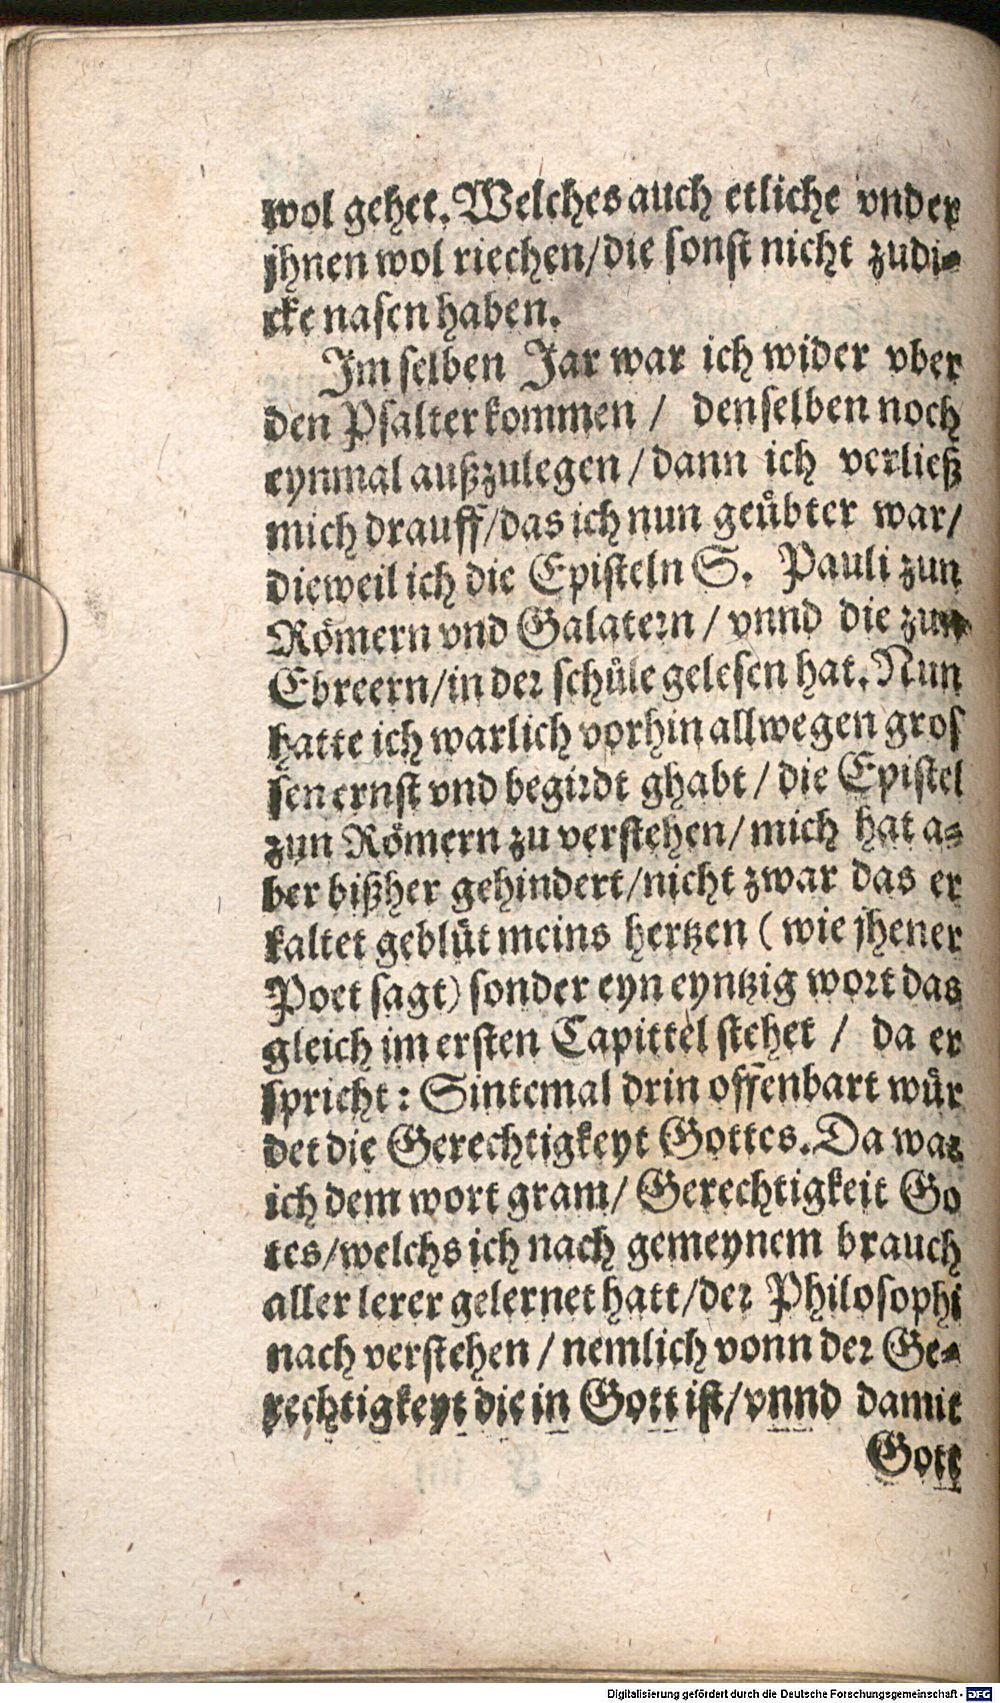 wol gehet. Welches auch etliche vnder
jhnen wol riechen/die sonst nicht zudi-
cke nasen haben.
Im selben Jar war ich wider vber
den Psalter kommen / denselben noch
eynmal außzulegen / dann ich verließ
mich drauff/das ich nun geübter war/
dieweil ich die Episteln S. Pauli zun
Römern vnd Galatern / vnnd die zun
Ebreern/in der schůle gelesen hat. Nun
hatte ich warlich vorhin allwegen gros
sen ernst vnd begirdt ghabt / die Epistel
zun Römern zu verstehen/ mich hat a-
ber bißher gehindert/nicht zwar das er
kaltet geblüt meins hertzen ( wie jhener
Poet sagt) sonder eyn eyntzig wort das
gleich im ersten Capittel stehet / da er
spricht: Sintemal drin offenbart wür
det die Gerechtigkeyt Gottes. Da war
ich dem wort gram/ Gerechtigkeit Go
tes/welchs ich nach gemeynem brauch
aller lerer gelernet hatt/der Philosophi
nach verstehen / nemlich vonn der Ge-
rechtigkeyt die in Gott ist/vnnd damit
Gott
Digitalisierung gefördert durch die Deutsche Forschungsgemeinschaft - DFG